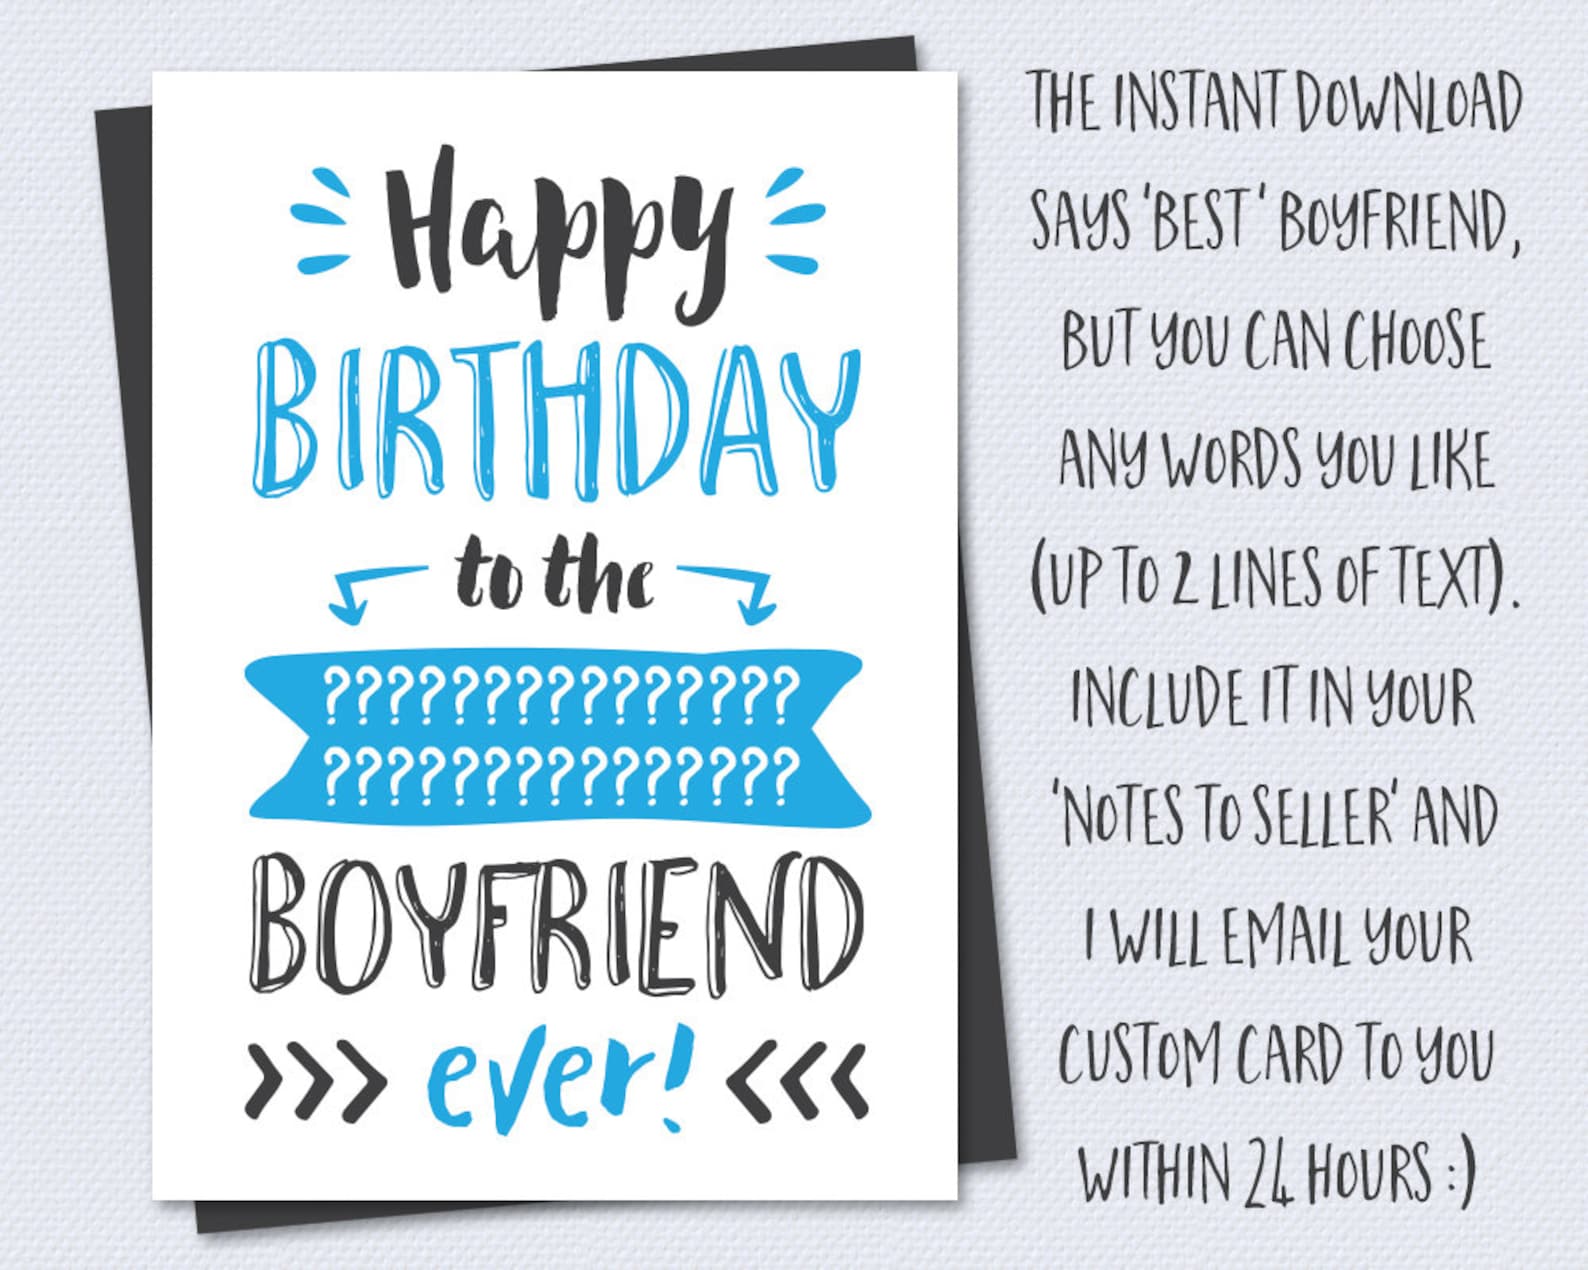 Happy
BIRTHDAY
to the
???????????????
???????????????
BOYFRIEND
ever!
THE INSTANT DOWNLOAD
SAYS 'BEST' BOYFRIEND,
BUT YOU CAN CHOOSE
ANY WORDS YOU LIKE
(UP TO 2 LINES OF TEXT).
INCLUDE IT IN YOUR
'NOTES TO SELLER' AND
I WILL EMAIL YOUR
CUSTOM CARD TO YOU
WITHIN 24 HOURS :)